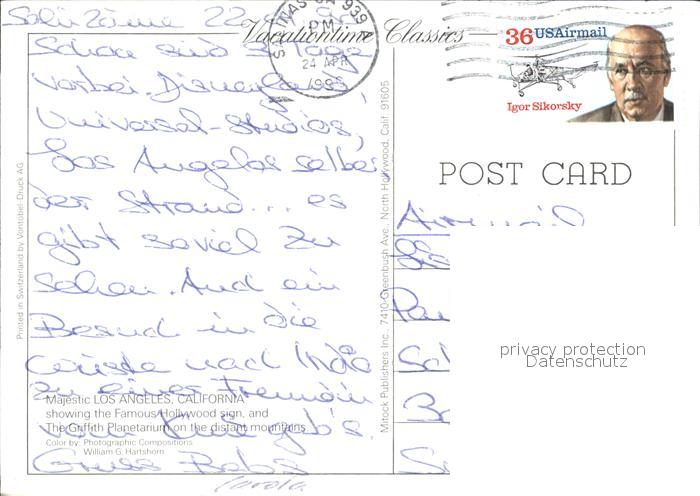 Salü Zäme 22.
Schon sind 3 Tage
vorbei. Disneyland,
Universal-Studios,
Los Angeles selber
der Strand... es
gibt soviel zu
sehen. Und ein
Besuch in die
Wüste nach Indio
zu einer Freundin
vom Kurs gib's.
Gruss Babs
Carola
Vacationtime Classics
SALINAS CA 939
PM
24 APR
36 USAirmail
Igor Sikorsky
POST CARD
Airmail
privacy protection
Datenschutz
Majestic LOS ANGELES, CALIFORNIA
showing the Famous Hollywood sign, and
The Griffith Planetarium on the distant mountains.
Color by: Photographic Compositions
William G. Hartshorn
Printed in Switzerland by Vontobel-Druck AG
Mitock Publishers Inc., 7410 Greenbush Ave., North Hollywood, Calif. 91605